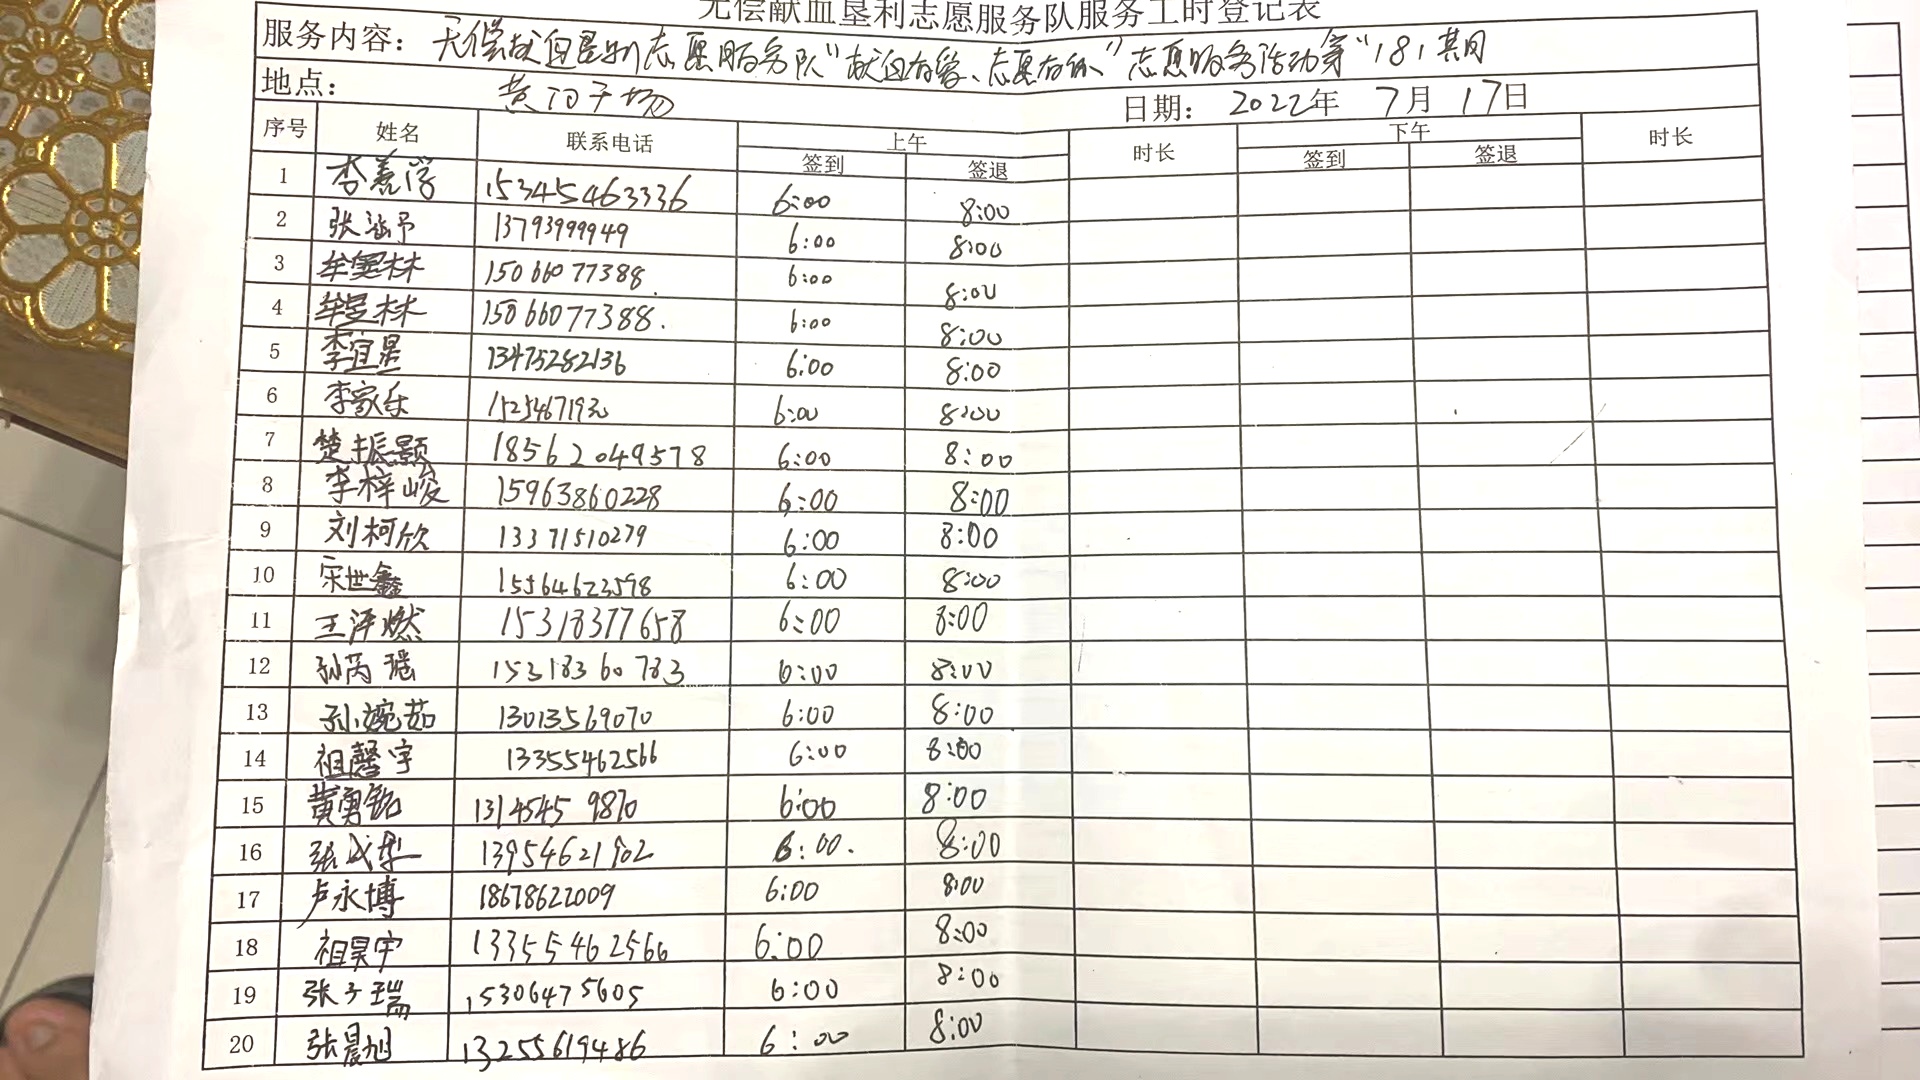 无偿献血垦利志愿服务队服务工时登记表
服务内容: 无偿献血垦利志愿服务队"献血有爱、志愿有你"志愿服务活动第"181其间
地点: 黄河广场 日期: 2022年 7月 17日
序号 姓名 联系电话 上午 时长 下午 时长
签到 签退 签到 签退
1 李善淳 15345463336 6:00 8:00
2 张涵予 13793999949 6:00 8:00
3 牟玺林 15066077388. 6:00 8:00
4 牟昱林 15066077388. 6:00 8:00
5 李宜星 13475282136 6:00 8:00
6 李家乐 15254671930 6:00 8:00
7 楚振颢 18562049578 6:00 8:00
8 李梓峻 15963860228 6:00 8:00
9 刘柯欣 13371510279 6:00 8:00
10 宋世鑫 15564623598 6:00 8:00
11 王泽燃 15318377658 6:00 8:00
12 孙芮瑶 15318360783 6:00 8:00
13 孙婉茹 13013569070 6:00 8:00
14 祖馨宇 13355462566 6:00 8:00
15 黄勇铭 13145459870 6:00 8:00
16 张成华 13954621902 6:00. 8:00
17 卢永博 18678622009 6:00 8:00
18 祖昊宇 13355462566 6:00 8:00
19 张子瑞 15306475605 6:00 8:00
20 张晨旭 13255619486 6:00 8:00